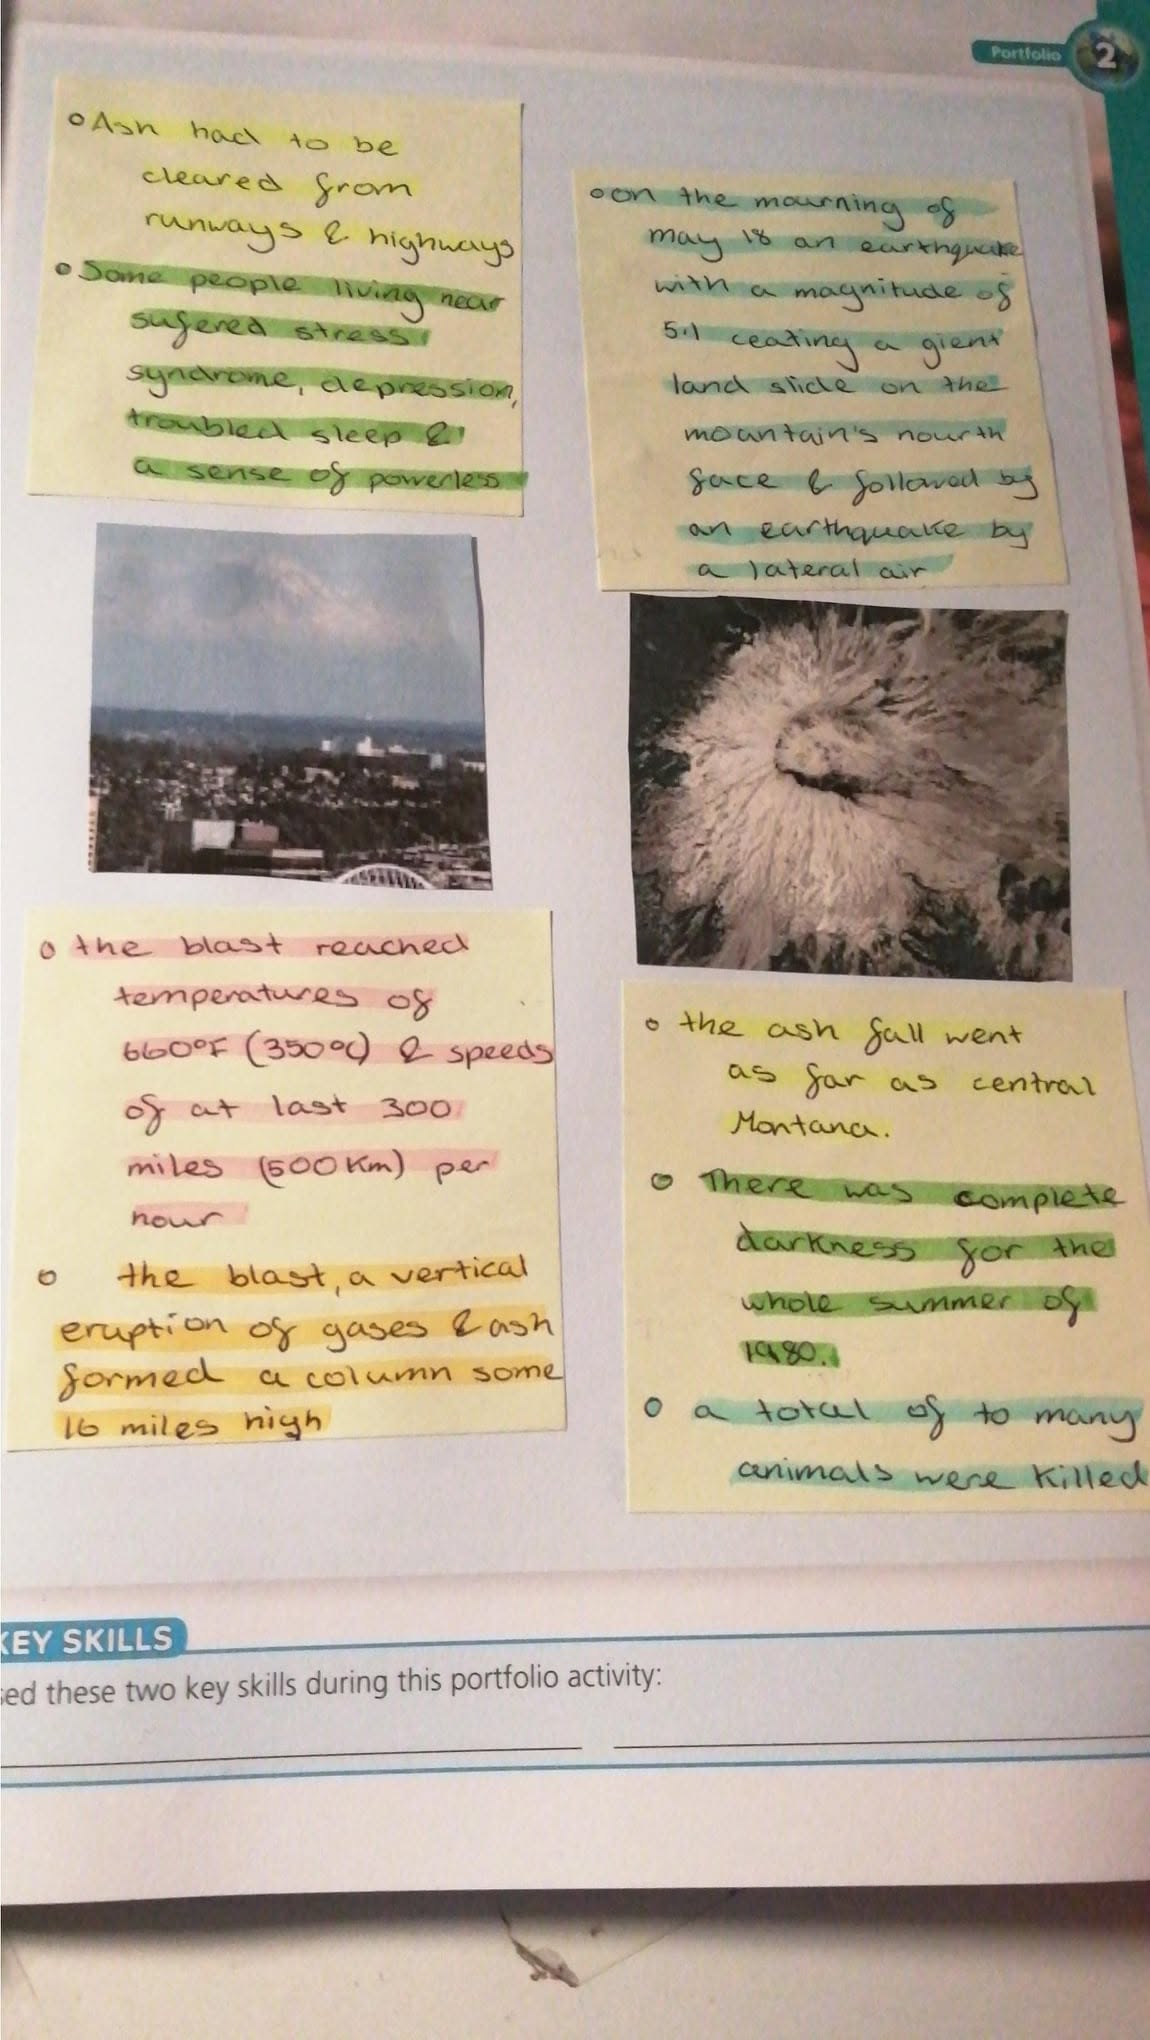 Portfolio 2
o Ash had to be
cleared from
runways & highways
o Some people living near
sufered stress
syndrome, depression,
troubled sleep &
a sense of powerless
o on the mourning of
may 18 an earthquake
with a magnitude of
5.1 ceating a gient
land slide on the
mountain's nourth
face & followed by
an earthquake by
a lateral air
o the blast reached
temperatures of
660°F (350°C) & speeds
of at last 300
miles (500Km) per
hour
o the blast, a vertical
eruption of gases & ash
formed a column some
16 miles high
o the ash fall went
as far as central
Montana.
o There was complete
darkness for the
whole summer of
1980.
o a total of to many
animals were killed
KEY SKILLS
sed these two key skills during this portfolio activity: